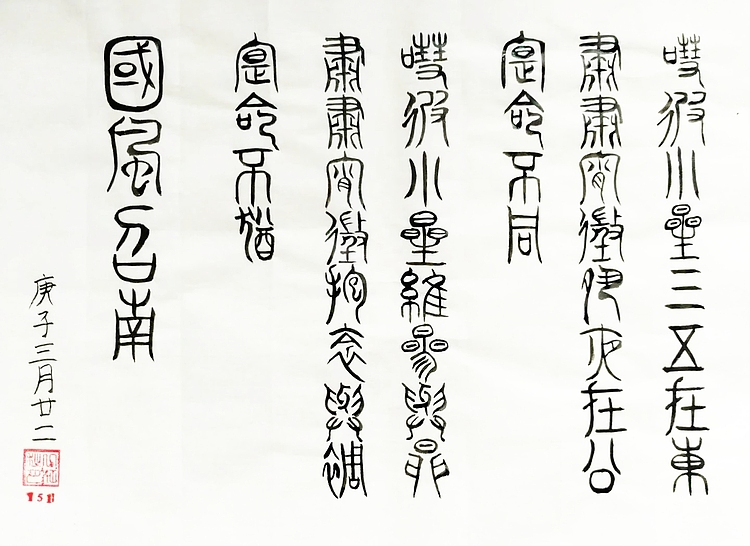 嘒彼小星三五在東
肅肅宵徵夙夜在公
寔命不同
嘒彼小星維參與昴
肅肅宵徵抱衾與裯
寔命不猶
國風召南
庚子三月廿二